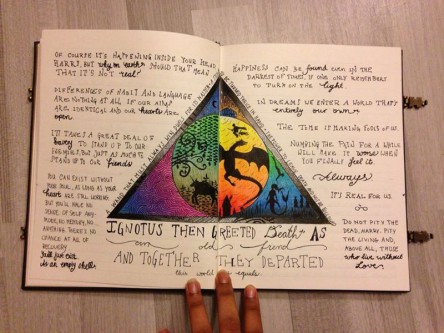 OF COURSE IT'S HAPPENING INSIDE YOUR HEAD,
HARRY, BUT why on earth SHOULD THAT MEAN
THAT IT'S NOT real?
DIFFERENCES OF HABIT AND LANGUAGE
ARE NOTHING AT ALL IF OUR AIMS
ARE IDENTICAL AND OUR hearts ARE
open.
IT TAKES A GREAT DEAL OF
bravery TO STAND UP TO OUR
ENEMIES, BUT JUST AS MUCH TO
STAND UP TO OUR friends
YOU CAN EXIST WITHOUT
YOUR SOUL, AS LONG AS YOUR
heart ARE STILL WORKING.
BUT YOU'LL HAVE NO
SENSE OF SELF ANY-
MORE, NO MEMORY, NO
ANYTHING. THERE'S NO
CHANCE AT ALL OF
RECOVERY.
Just exist.
As an empty shell.
HAPPINESS CAN BE found EVEN IN THE
DARKEST OF TIMES, IF ONE ONLY REMEMBERS
TO TURN ON THE light.
IN DREAMS WE ENTER A WORLD THAT'S
entirely our own.
THE TIME IS MAKING FOOLS OF US.
NUMBING THE PAIN FOR A WHILE
WILL MAKE IT worse WHEN
YOU FINALLY feel it.
Always
IT'S REAL FOR US
DO NOT PITY THE
DEAD, HARRY. PITY
THE LIVING AND,
ABOVE ALL, THOSE
who live without
Love.
IGNOTUS THEN GREETED Death AS
an old friend
AND TOGETHER THEY DEPARTED
this world equals.